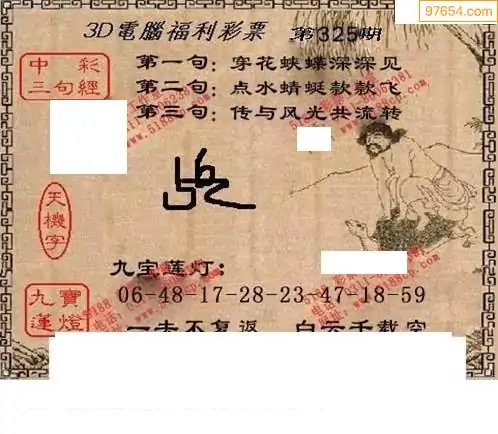 97654.com
3D電腦福利彩票 第325期
中彩三句經
第一句：穿花蛱蝶深深见
第二句：点水蜻蜓款款飞
第三句：传与风光共流转
天機字
九宝莲灯：
九寶蓮燈
06-48-17-28-23-47-18-59
一去不复返 白云千载空